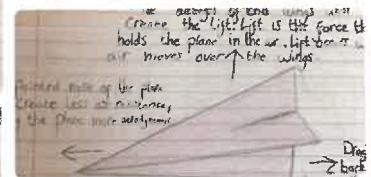 the wings
Create the lift. Lift is the force th
holds the plane in the air. Lift
air moves over the wings
Pointed nose of the plane
Create less air
the plane more aerodynamic
Drag
back